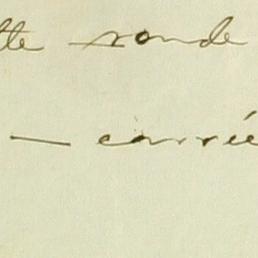 tte ronde
— carrée